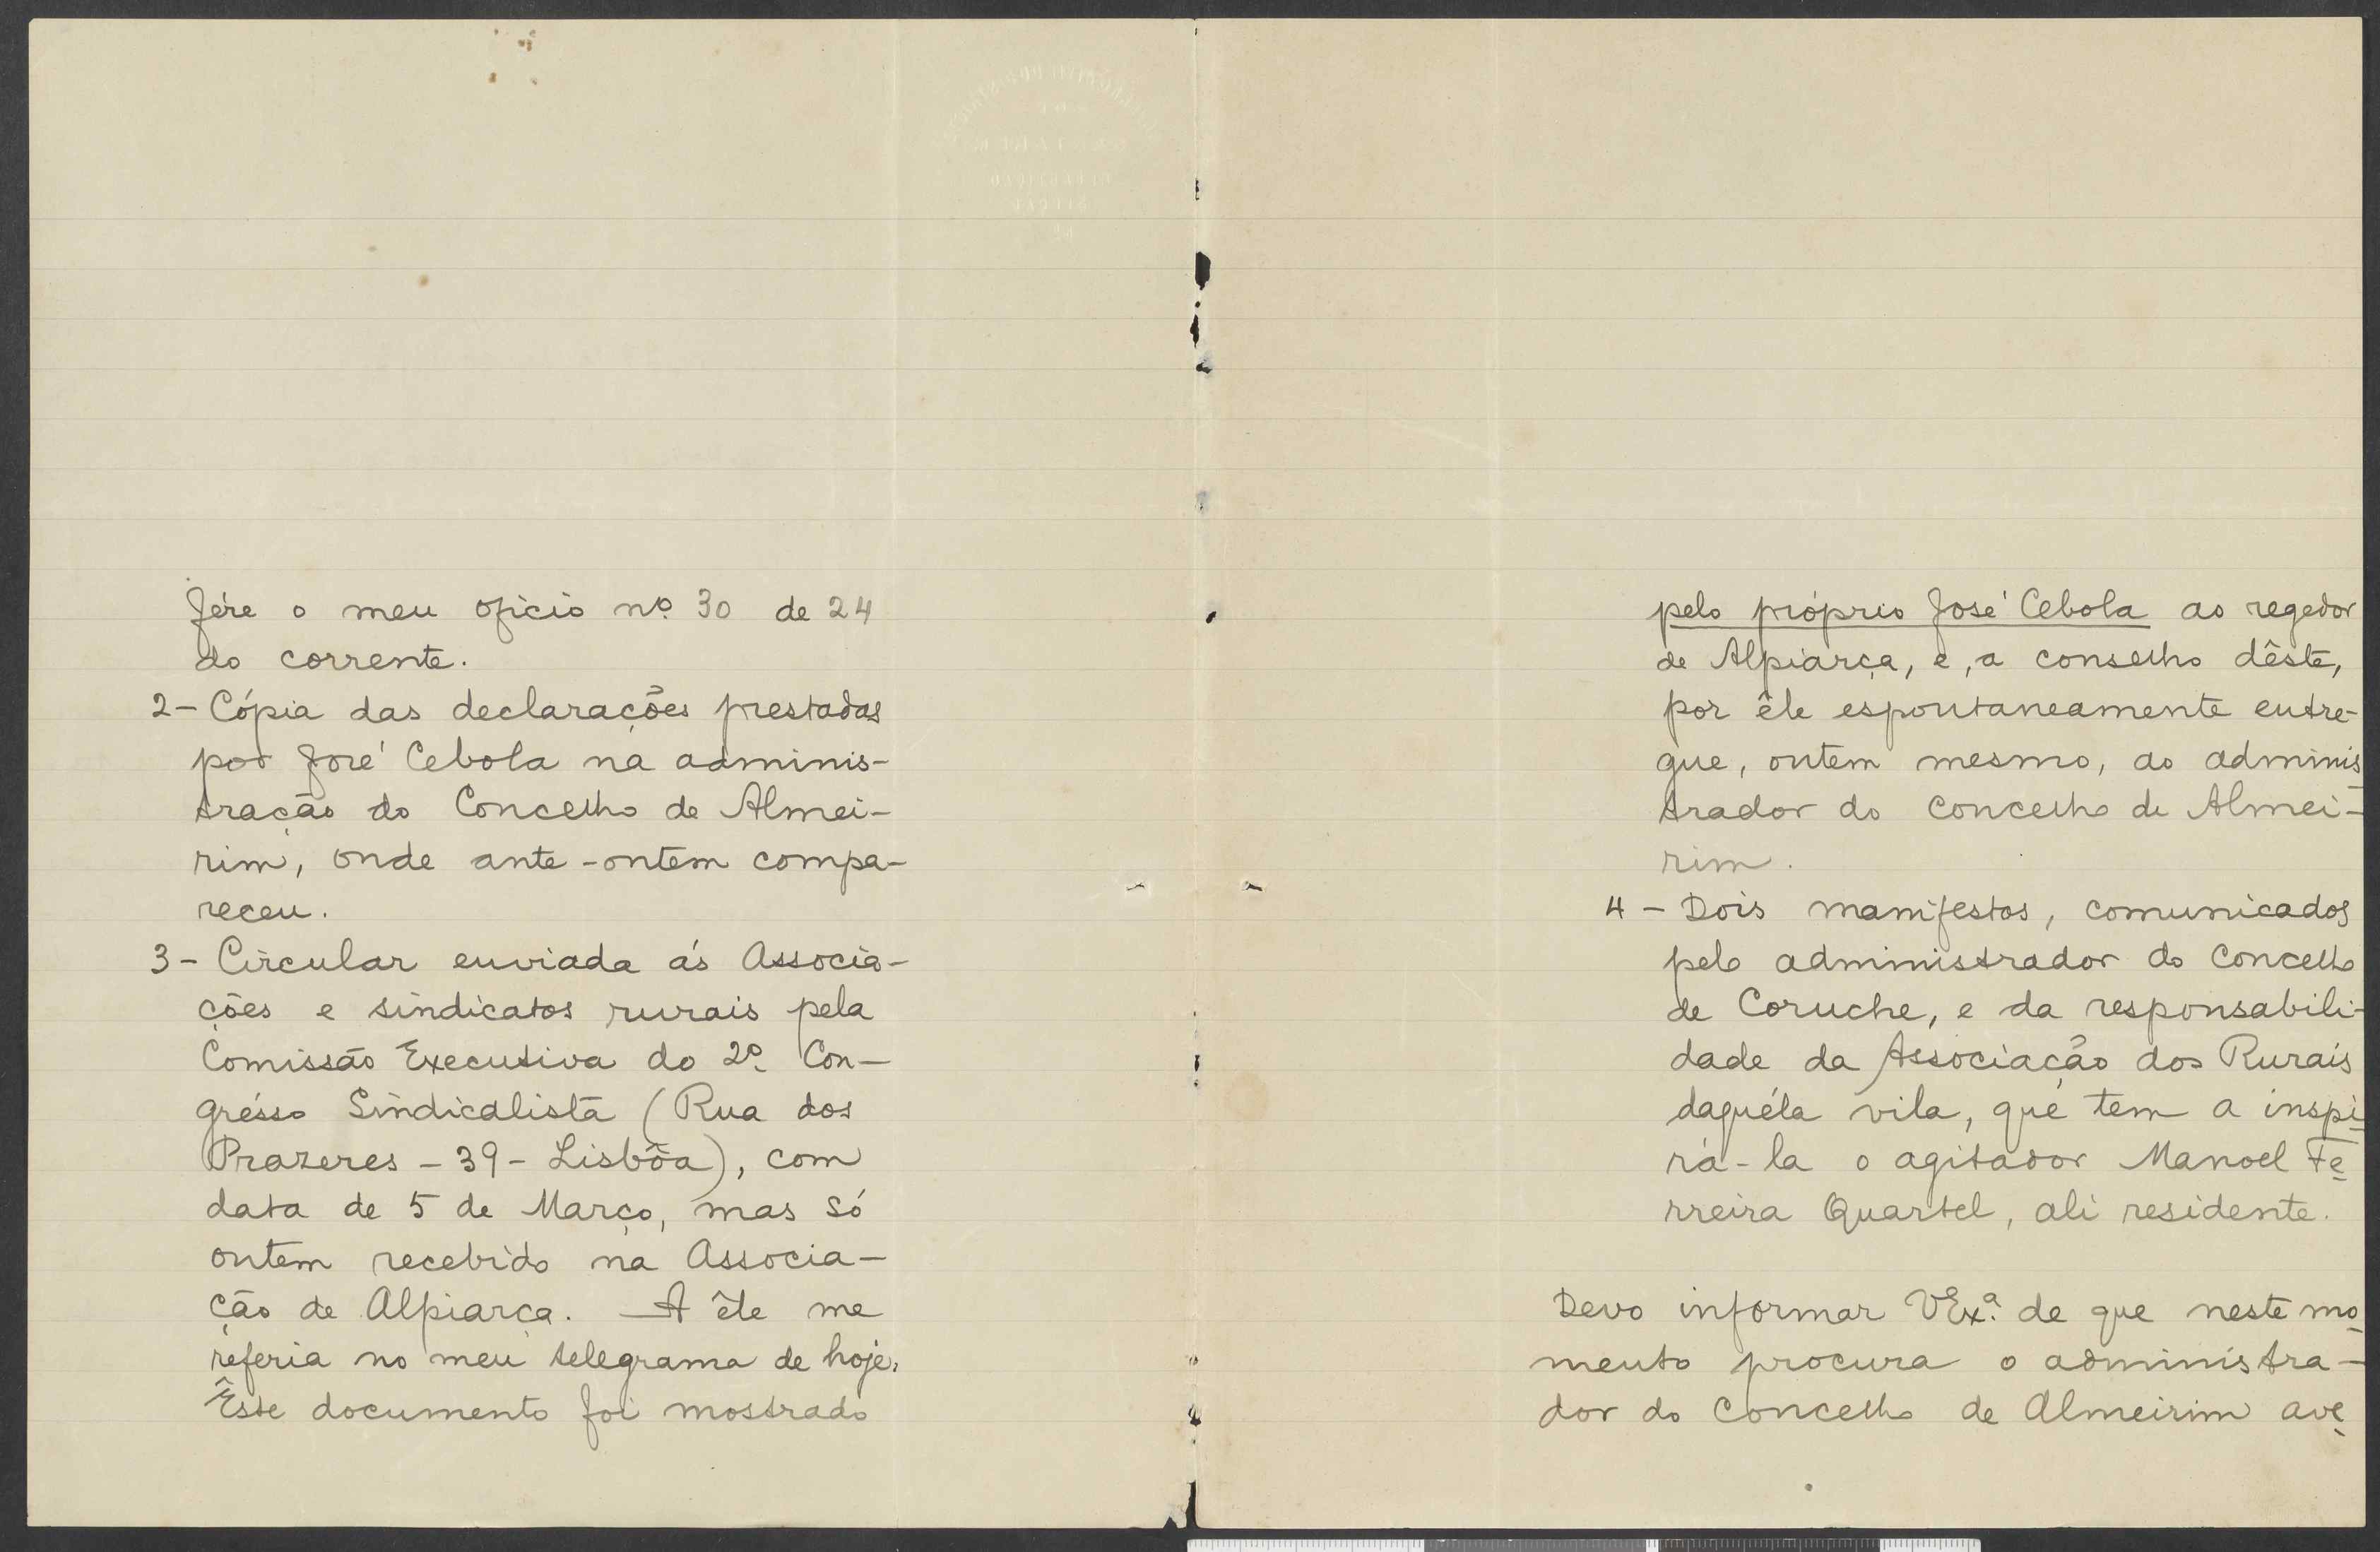 fére o meu oficio nº 30 de 24
do corrente.
2- Cópia das declarações prestadas
por José Cebola na adminis-
tração do Concelho de Almei-
rim, onde ante-ontem compa-
receu.
3- Circular enviada ás Associa-
ções e sindicatos rurais pela
Comissão Executiva do 2º Con-
grésso Sindicalista (Rua dos
Prazeres - 39 - Lisbôa), com
data de 5 de Março, mas só
ontem recebido na Associa-
ção de Alpiarça. A êle me
referia no meu telegrama de hoje.
Êste documento foi mostrado
pelo próprio José Cebola ao regedor
de Alpiarça, e, a conselho dêste,
por êle espontaneamente entre-
gue, ontem mesmo, ao adminis
trador do Concelho de Almei-
rim.
4 - Dois manifestos, comunicados
pelo administrador do Concelho
de Coruche, e da responsabili-
dade da Associação dos Rurais
daquéla vila, que tem a inspi
rá-la o agitador Manoel Fe
rreira Quartel, ali residente.
Devo informar VExª. de que neste mo
mento procura o administra-
dor do Concelho de Almeirim ave